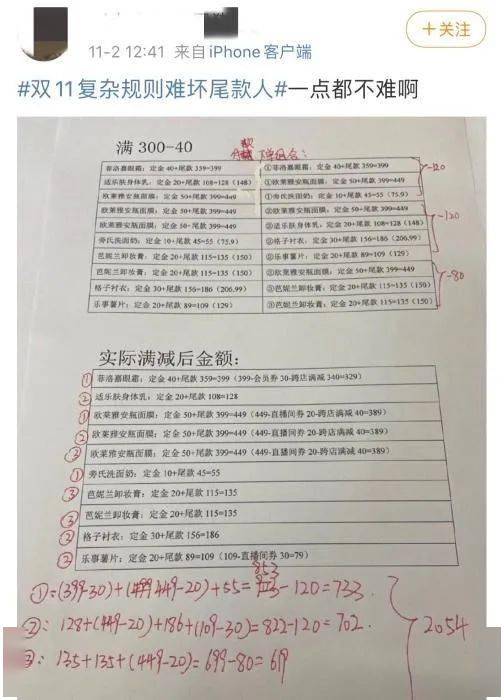 11-2 12:41 来自 iPhone客户端
+关注
#双11复杂规则难坏尾款人#一点都不难啊
满 300-40
分款下单组合：
菲洛嘉眼霜：定金 40+尾款 359=399
①菲洛嘉眼霜：定金 40+尾款 359=399
适乐肤身体乳：定金 20+尾款 108=128（148）
①欧莱雅安瓶面膜：定金 50+尾款 399=449
欧莱雅安瓶面膜：定金 50+尾款 399=449
①旁氏洗面奶：定金 10+尾款 45=55（75.9）
-120
欧莱雅安瓶面膜：定金 50+尾款 399=449
②欧莱雅安瓶面膜：定金 50+尾款 399=449
欧莱雅安瓶面膜：定金 50+尾款 399=449
②适乐肤身体乳：定金 20+尾款 108=128（148）
旁氏洗面奶：定金 10+尾款 45=55（75.9）
②格子衬衣：定金 30+尾款 156=186（206.99）
芭妮兰卸妆膏：定金 20+尾款 115=135（150）
②乐事薯片：定金 20+尾款 89=109（129）
-120
芭妮兰卸妆膏：定金 20+尾款 115=135（150）
③欧莱雅安瓶面膜：定金 50+尾款 399=449
格子衬衣：定金 30+尾款 156=186（206.99）
③芭妮兰卸妆膏：定金 20+尾款 115=135（150）
乐事薯片：定金 20+尾款 89=109（129）
③芭妮兰卸妆膏：定金 20+尾款 115=135（150）
-80
实际满减后金额：
① 菲洛嘉眼霜：定金 40+尾款 359=399（399-会员券 30-跨店满减 340=329）
② 适乐肤身体乳：定金 20+尾款 108=128
① 欧莱雅安瓶面膜：定金 50+尾款 399=449（449-直播间券 20-跨店满减 40=389）
② 欧莱雅安瓶面膜：定金 50+尾款 399=449（449-直播间券 20-跨店满减 40=389）
② 欧莱雅安瓶面膜：定金 50+尾款 399=449（449-直播间券 20-跨店满减 40=389）
① 旁氏洗面奶：定金 10+尾款 45=55
③ 芭妮兰卸妆膏：定金 20+尾款 115=135
③ 芭妮兰卸妆膏：定金 20+尾款 115=135
② 格子衬衣：定金 30+尾款 156=186
② 乐事薯片：定金 20+尾款 89=109（109-直播间券 30=79）
853
①=(399-30)+(449-20)+55=-120=733
②: 128+(449-20)+186+(109-30)=822-120=702
③: 135+135+(449-20)=699-80=619
2054